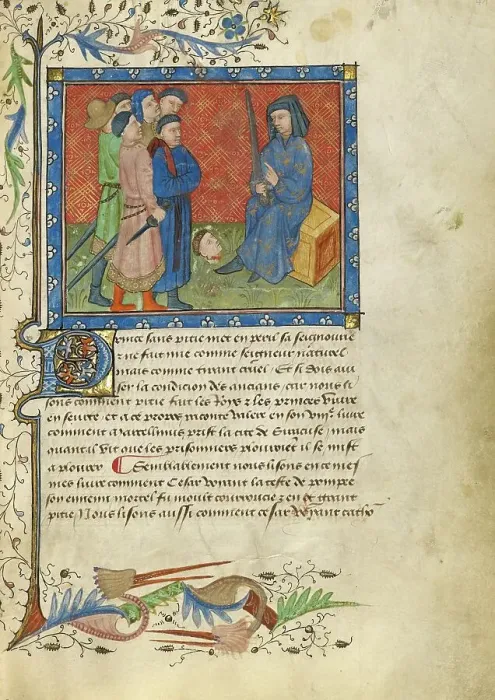 Prince sans pitie met en peril sa seignourie
⁊ ne fait mie comme seigneur naturel
mais comme tirant cruel Et se dois aui
ser la condicion des anciens car nous li
sons comment pitie fait les Roys ⁊ les princes viure
en seurte et a ce propos raconte Valere en son liure
comment Marcellinus prist la cite de Siracuse mais
quant il vit que les prisonniers plouroient il se mist
a plourer Semblablement nous lisons en ce mes
mes liure comment Cesar voyant la teste de pompee
son ennemi mortel fu moult courroucie ⁊ en ot grant
pitie Nous lisons aussi comment cesar voyant catho